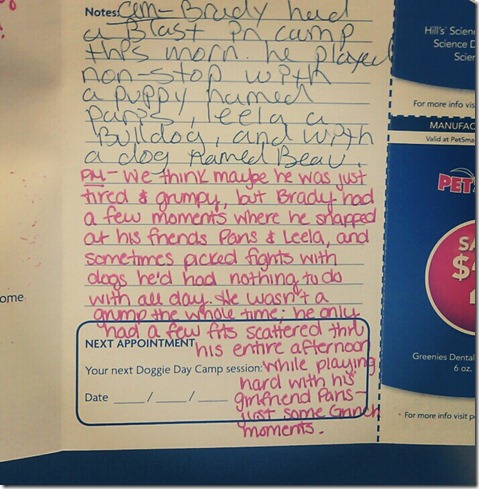 Notes: am- Brady had
a Blast in camp
this morn. he played
non-stop with
a puppy named
Paris, leela a
Bulldog, and with
a dog named Beau.
PM- We think maybe he was just
tired & grumpy, but Brady had
a few moments where he snapped
at his friends Paris & Leela, and
sometimes picked fights with
dogs he'd had nothing to do
with all day. He wasn't a
grump the whole time; he only
had a few fits scattered thru
NEXT APPOINTMENT his entire afternoon
Your next Doggie Day Camp session: while playing
hard with his
Date ____/____/____ girlfriend Paris-
just some Grinch
moments.
ome
Hill's Scien
Science D
Scien
For more info vis
MANUFAC
Valid at PetSma
PETS
SA
$
Greenies Dental
6 oz.
For more info visit p